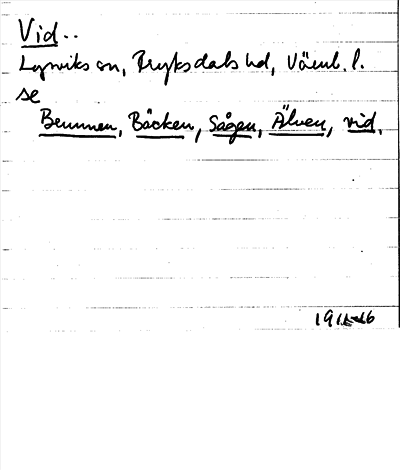 Vid..
Lysviks sn, Fryksdals hd, Värml. l.
se
Brunnen, Bäcken, Sågen, Älven, vid.